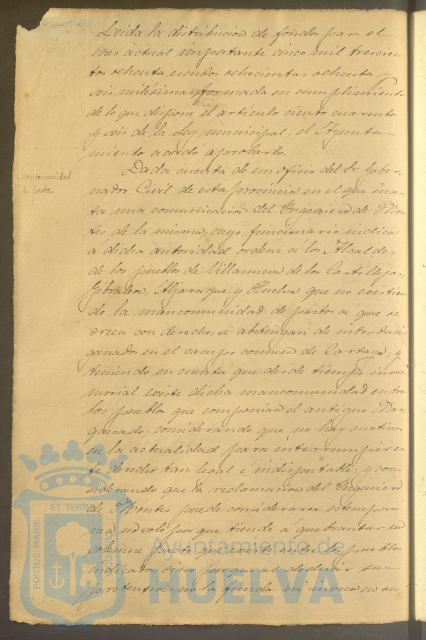 Leida la distribución de fondos para el
mes actual importante cinco mil trescien
tos ochenta escudos ochocientas ochenta y
seis milésimas formada en cumplimiento
de lo que dispone el artículo ciento cuarenta
y seis de la Ley municipal, el Ayunta-
miento acordó aprobarlo.
Mancomunidad
de pastos.
Dada cuenta de un oficio del Sr. Gober-
nador Civil de esta provincia en el que inser-
ta una comunicación del Ingeniero de Mon-
tes de la misma, cuyo funcionario indica
á dicha autoridad ordene á los Alcaldes
de los pueblos de Villanueva de los Castillejos,
Gibraleon, Aljaraque y Huelva que no existien
do la mancomunidad de pastos á que se
creen con derecho, se abstengan de introducir
ganados en el campo comun de Cartaya, y
teniendo en cuenta que desde tiempo inme
morial existe dicha mancomunidad entre
los pueblos que componian el antiguo Mar-
quesado; considerando que no hay motivo
en la actualidad para interrumpir es
te derecho tan legal é indisputable, y con-
siderando que la reclamacion del Ingeniero
de Montes puede considerarse estempora
nea no solo por que tiende á quebrantar un
solemne pacto que existe entre los pueblos
indicados, sino porque al deducir su
pretension no la funda ni invoca en su
PORTUS MARIS
ET TERRÆ
Ayuntamiento de
HUELVA